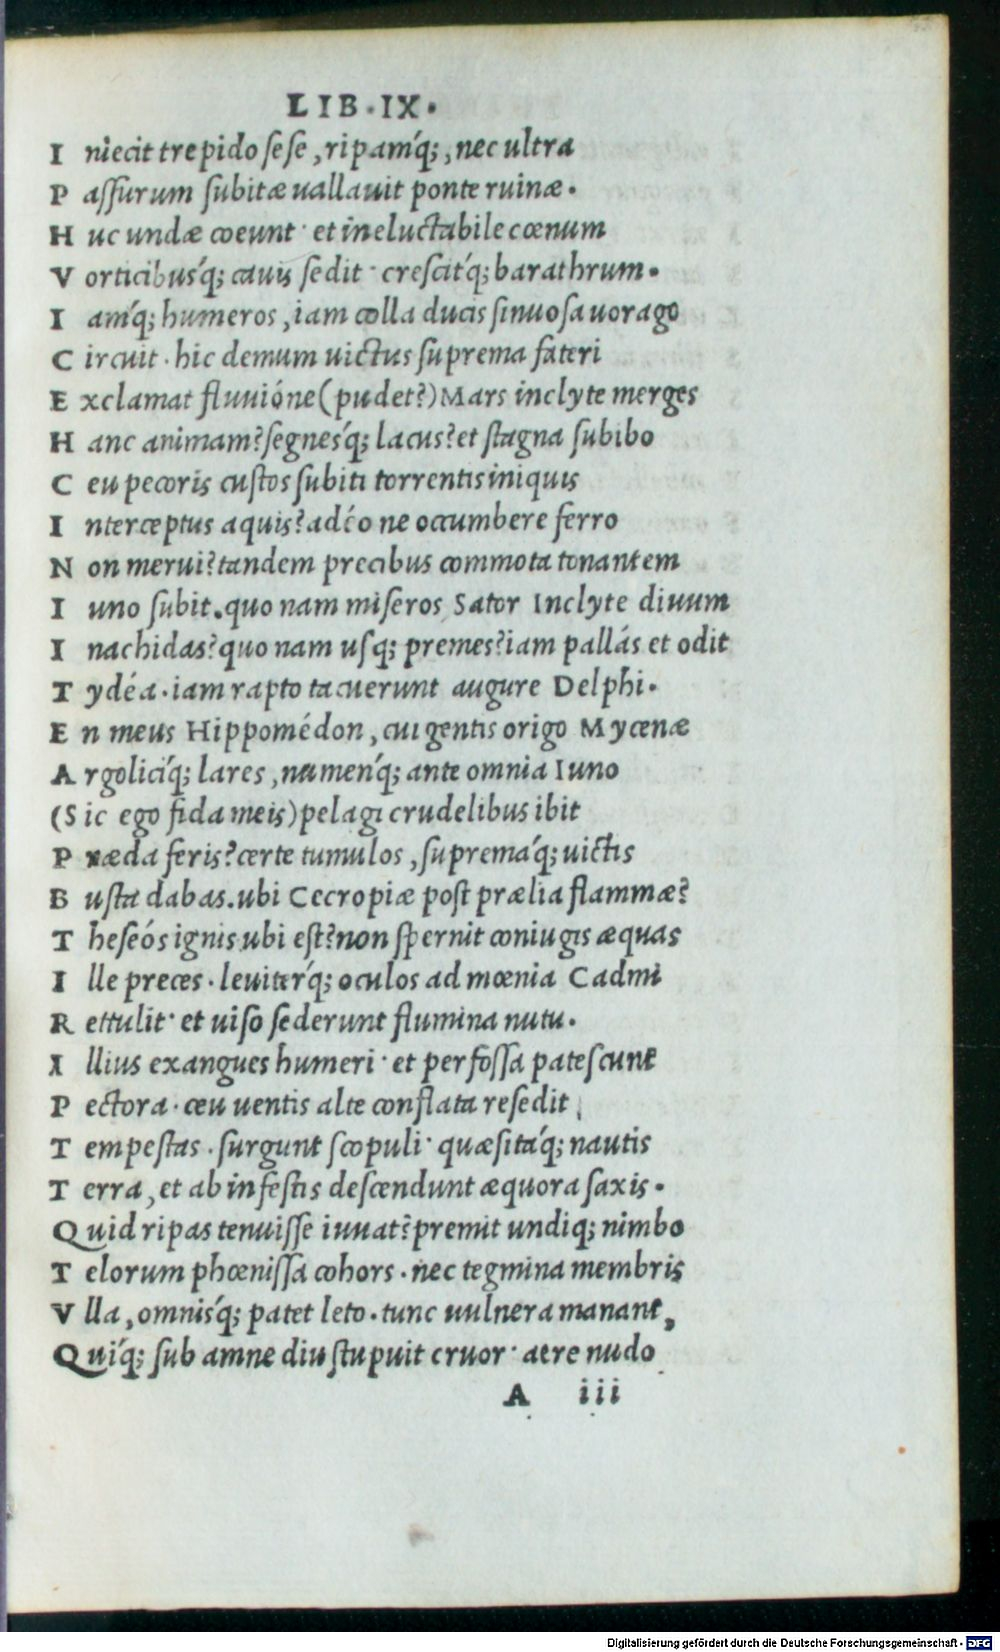 LIB.IX.
I niecit trepido sese, ripamq́;, nec ultra
P assurum subitæ uallauit ponte ruinæ.
H uc undæ coeunt· et ineluctabile cœnum
V orticibusq́; cauis sedit· crescitq́; barathrum.
I amq́; humeros, iam colla ducis sinuosa uorago
C ircuit. hic demum uictus suprema fateri
E xclamat fluuióne (pudet?) Mars inclyte merges
H anc animam? segnesq́; lacus? et stagna subibo
C eu pecoris custos subiti torrentis iniquis
I nterceptus aquis? adéo ne occumbere ferro
N on merui? tandem precibus commota tonantem
I uno subit. quo nam miseros Sator Inclyte diuum
I nachidas? quo nam usq; premes? iam pallás et odit
T ydéa. iam rapto tacuerunt augure Delphi.
E n meus Hippomédon, cui gentis origo Mycenæ
A rgoliciq́; lares, numenq́; ante omnia Iuno
(S ic ego fida meis) pelagi crudelibus ibit
P ræda feris? certe tumulos, supremaq́; uictis
B usta dabas. ubi Cecropiæ post prælia flammæ?
T heseós ignis ubi est? non spernit coniugis æquas
I lle preces. leuiterq́; oculos ad mœnia Cadmi
R ettulit· et uiso sederunt flumina nutu.
I llius exangues humeri· et perfossa patescunt
P ectora. ceu uentis alte conflata resedit,
T empestas. surgunt scopuli· quæsitaq́; nautis
T erra, et ab infestis descendunt æquora saxis.
Q uid ripas tenuisse iuuat? premit undiq; nimbo
T elorum phœnissa cohors. nec tegmina membris
V lla, omnisq́; patet leto. tunc uulnera manant,
Q uiq́; sub amne diu stupuit cruor· aere nudo
A iii
Digitalisierung gefördert durch die Deutsche Forschungsgemeinschaft - DFG